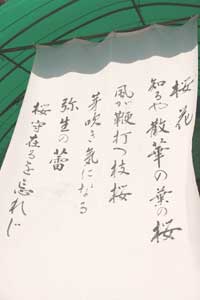 桜花
知るや散華の葉の桜
風が鞭打つ枝桜
芽吹き気になる
弥生の蕾
桜守在るを忘れじ